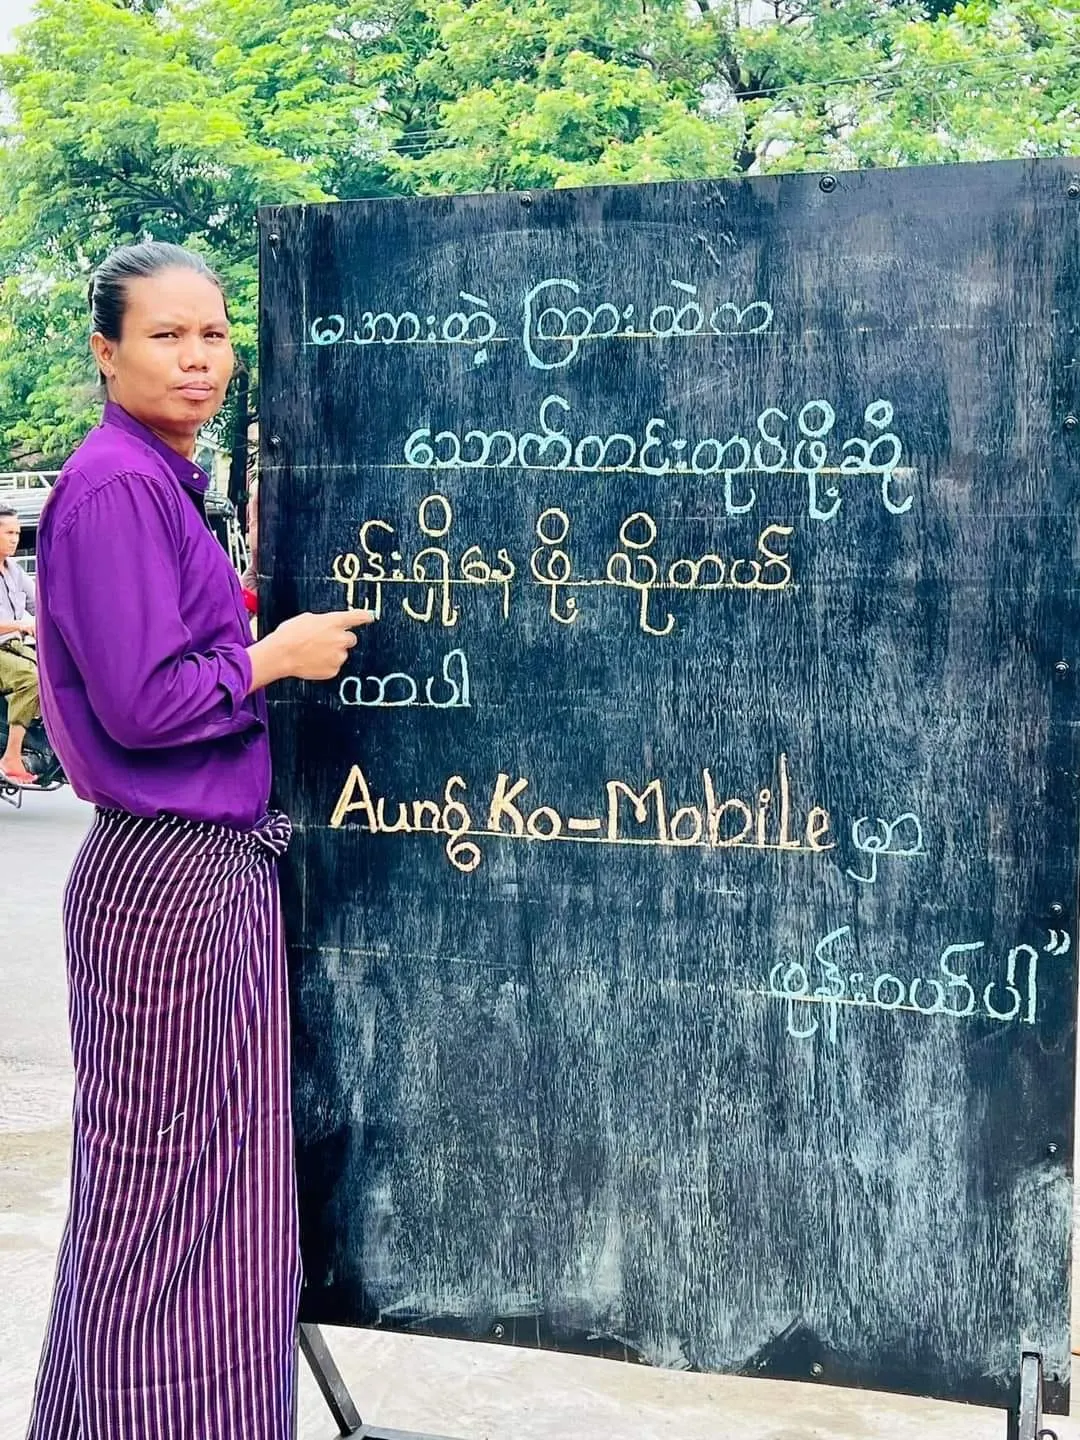 မအားတဲ့ ကြားထဲက
သောက်တင်းတုပ်ဖို့ဆို
ဖုန်းရှိနေ ဖို့ လိုတယ်
လာပါ
Aung Ko-Mobile မှာ
ဖုန်းဝယ်ပါ"